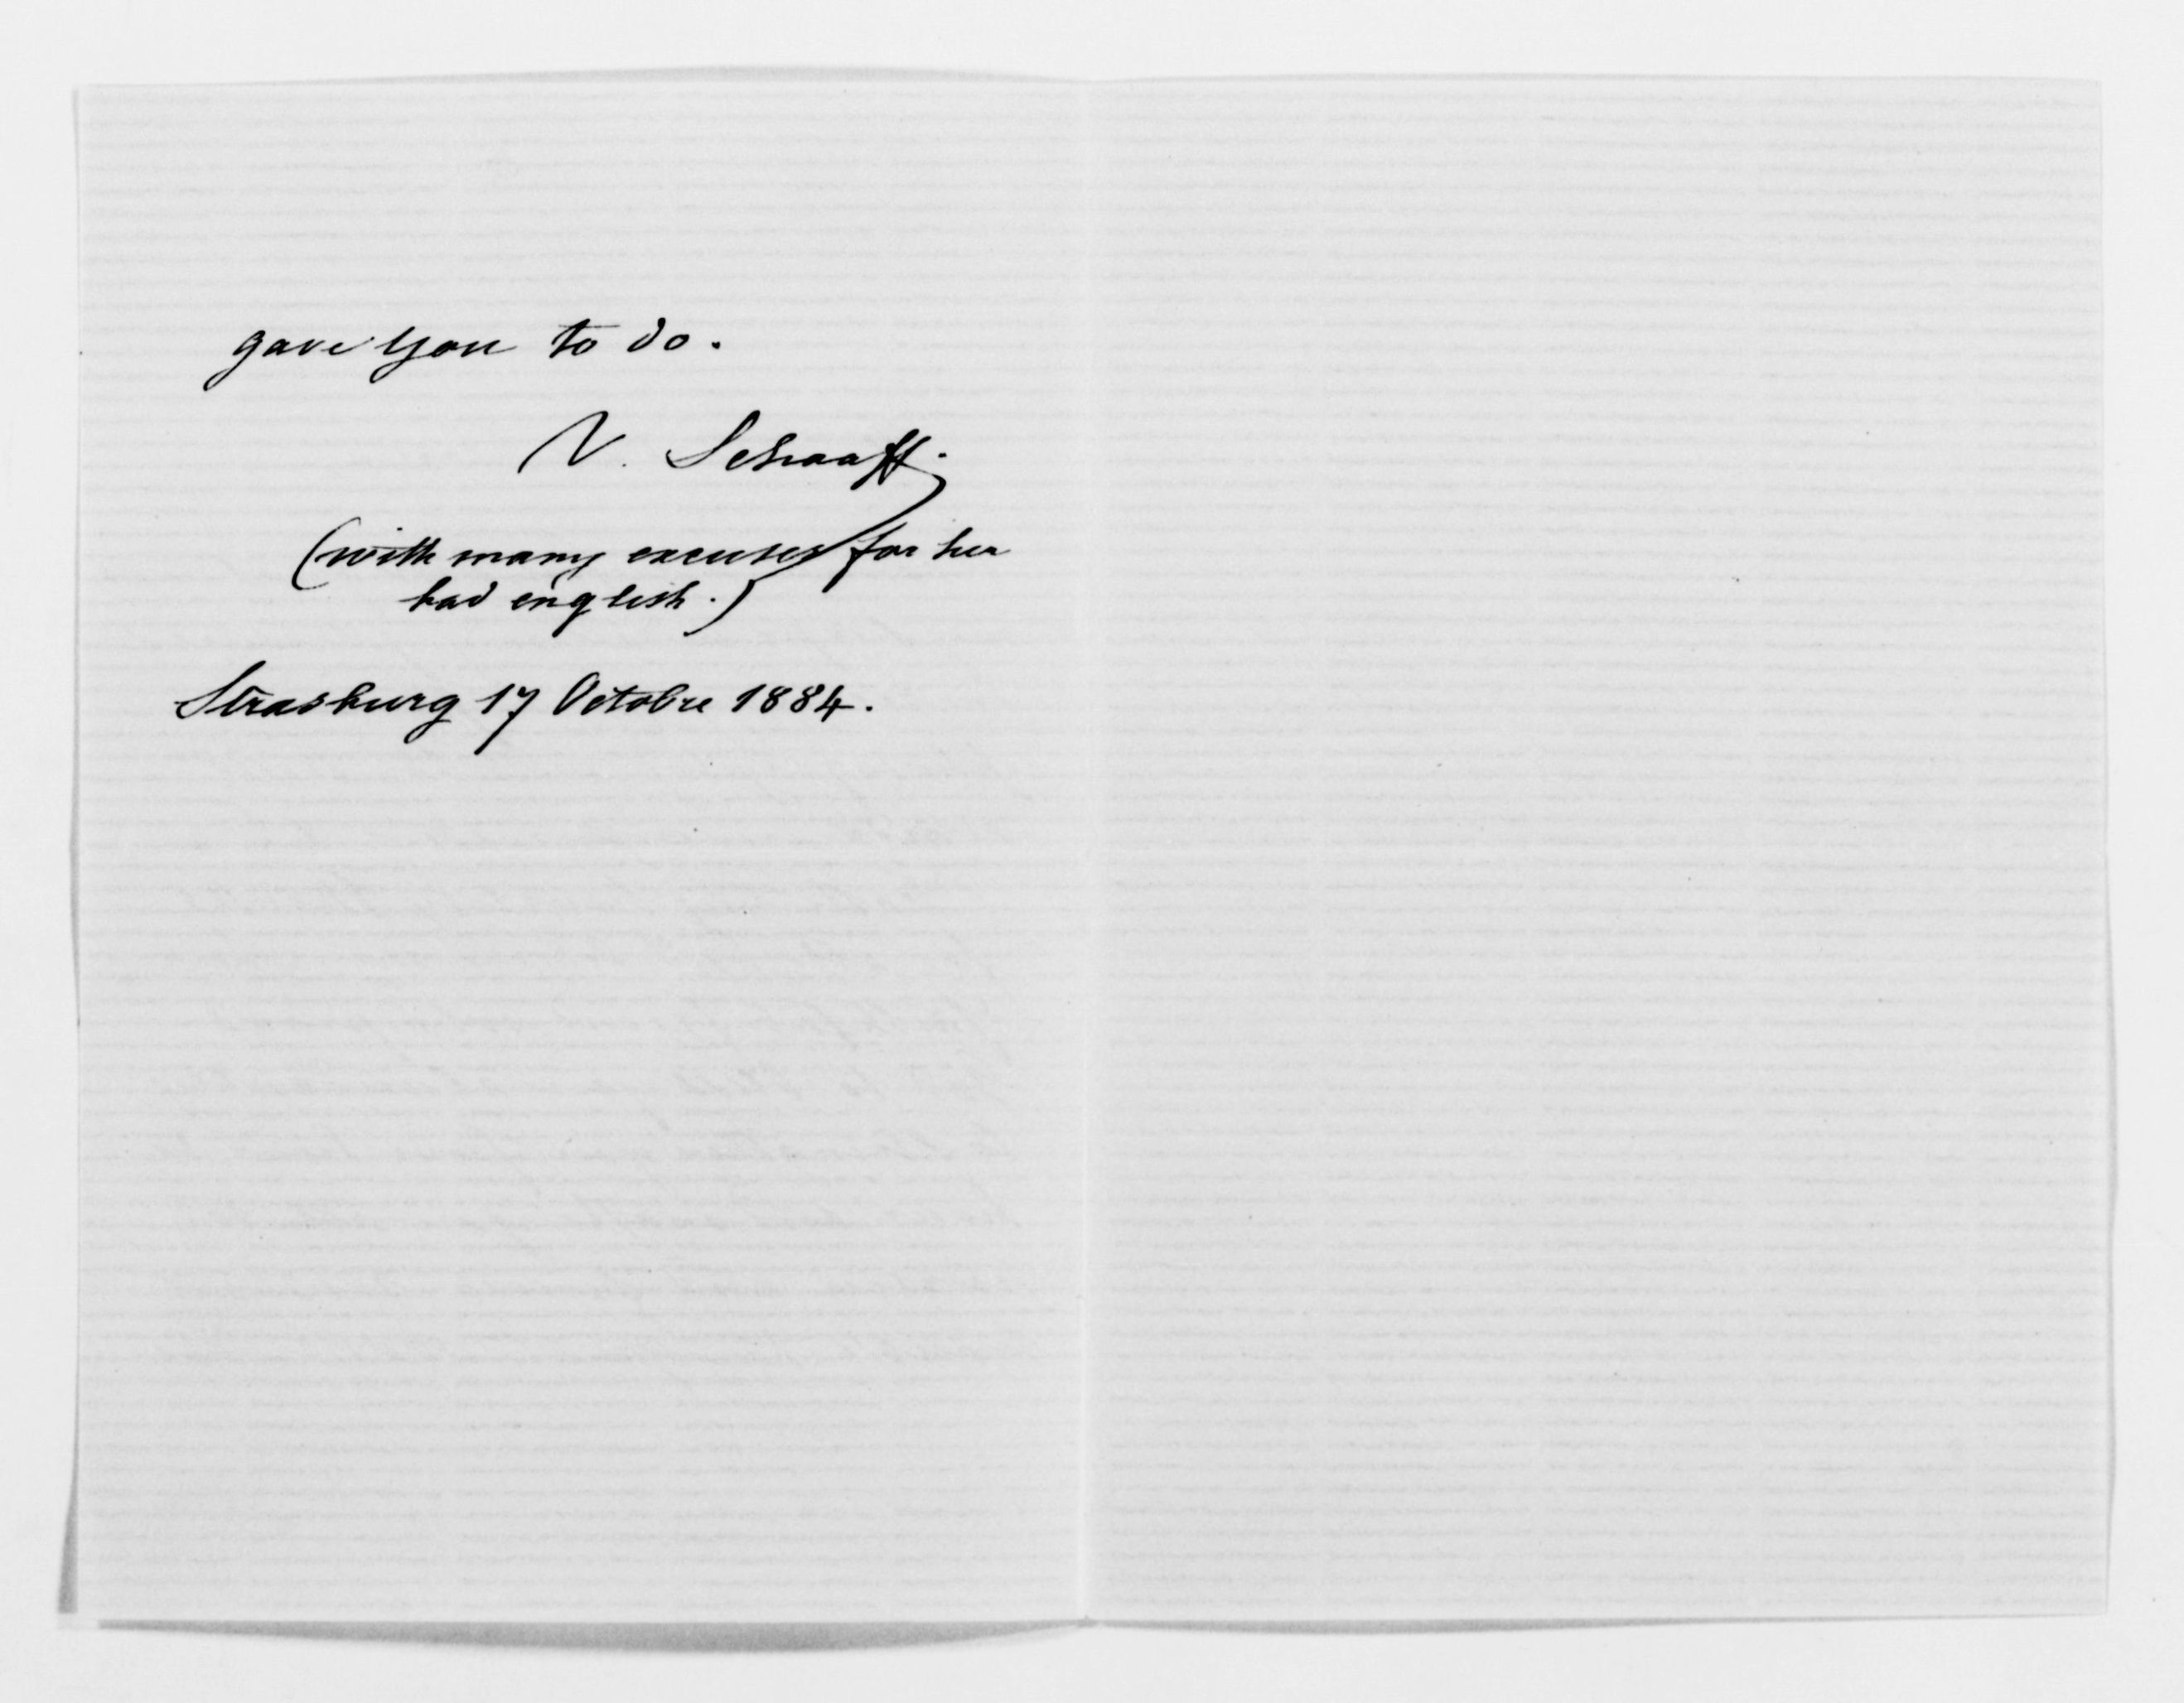 gave you to do.
N. Schaaff.
(with many excuses for her
bad english.)
Strasburg 17 Octobre 1884.